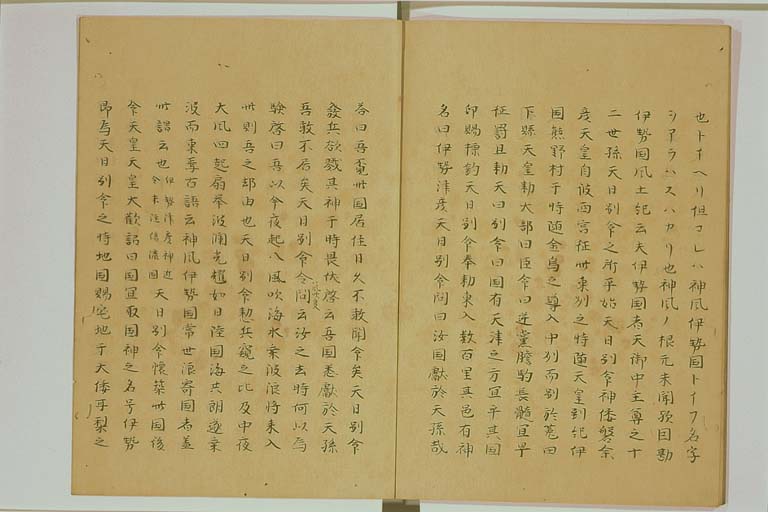 也トイヘリ但コレハ神風伊勢国トイフ名字
シアラハスハカリ也神風ノ根元未聞預目勘
伊勢国風土記云夫伊勢国者天御中主尊之十
二世孫天日別命之所平始天日別命神倭磐余
彦天皇自彼西宮征此東州之時随天皇到紀伊
国熊野村于時随金烏之導入中州而到於菟田
下縣天皇勅大部日臣命曰逆黨膽駒長髄宜早
征罰且勅天日別命曰国有天津之方宜平其国
即賜標釼天日別命奉勅東入数百里其邑有神
名曰伊勢津彦天日別命問曰汝国獻於天孫哉
荅曰吾覓此国居住日久不敢聞命矣天日別命
發兵欲戮其神于時畏伏啓云吾国悉獻於天孫
吾敢不居矣天日別命令問云汝之去時何以為
驗啓曰吾以今夜起八風吹海水乗波浪将東入
此則吾之却由也天日別命勒兵窺之比及中夜
大風四起扇挙波瀾光耀如日陸国海共朗遂乗
波而東焉古語云神風伊勢国常世浪寄国者蓋
此謂之也 伊勢津彦神逃令来往信濃国 天日別命懐築此国復
命天皇天皇大歓詔曰国宜取国神之名号伊勢
即為天日別命之封地国賜宅地于大倭耳梨之